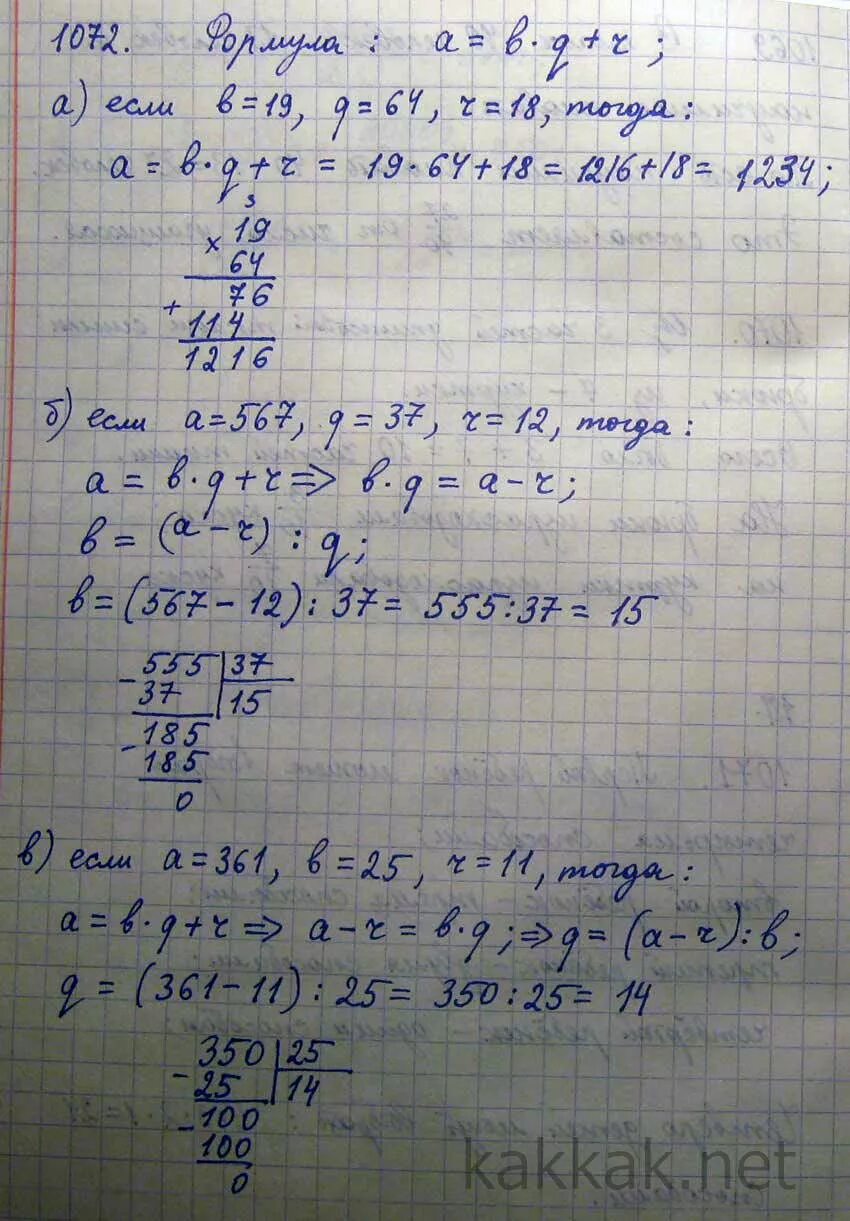 1072. Формула : a = b · q + r ;
а) если b = 19, q = 64, r = 18, тогда :
a = b · q + r = 19 · 64 + 18 = 1216 + 18 = 1234 ;
3
× 19
64
76
+
114
1216
б) если a = 567, q = 37, r = 12, тогда :
a = b · q + r => b · q = a − r ;
b = (a − r) : q ;
b = (567 − 12) : 37 = 555 : 37 = 15
− 555 37
37 15
− 185
185
0
в) если a = 361, b = 25, r = 11, тогда :
a = b · q + r => a − r = b · q ; => q = (a − r) : b ;
q = (361 − 11) : 25 = 350 : 25 = 14
− 350 25
25 14
− 100
100
0
kakkak.net